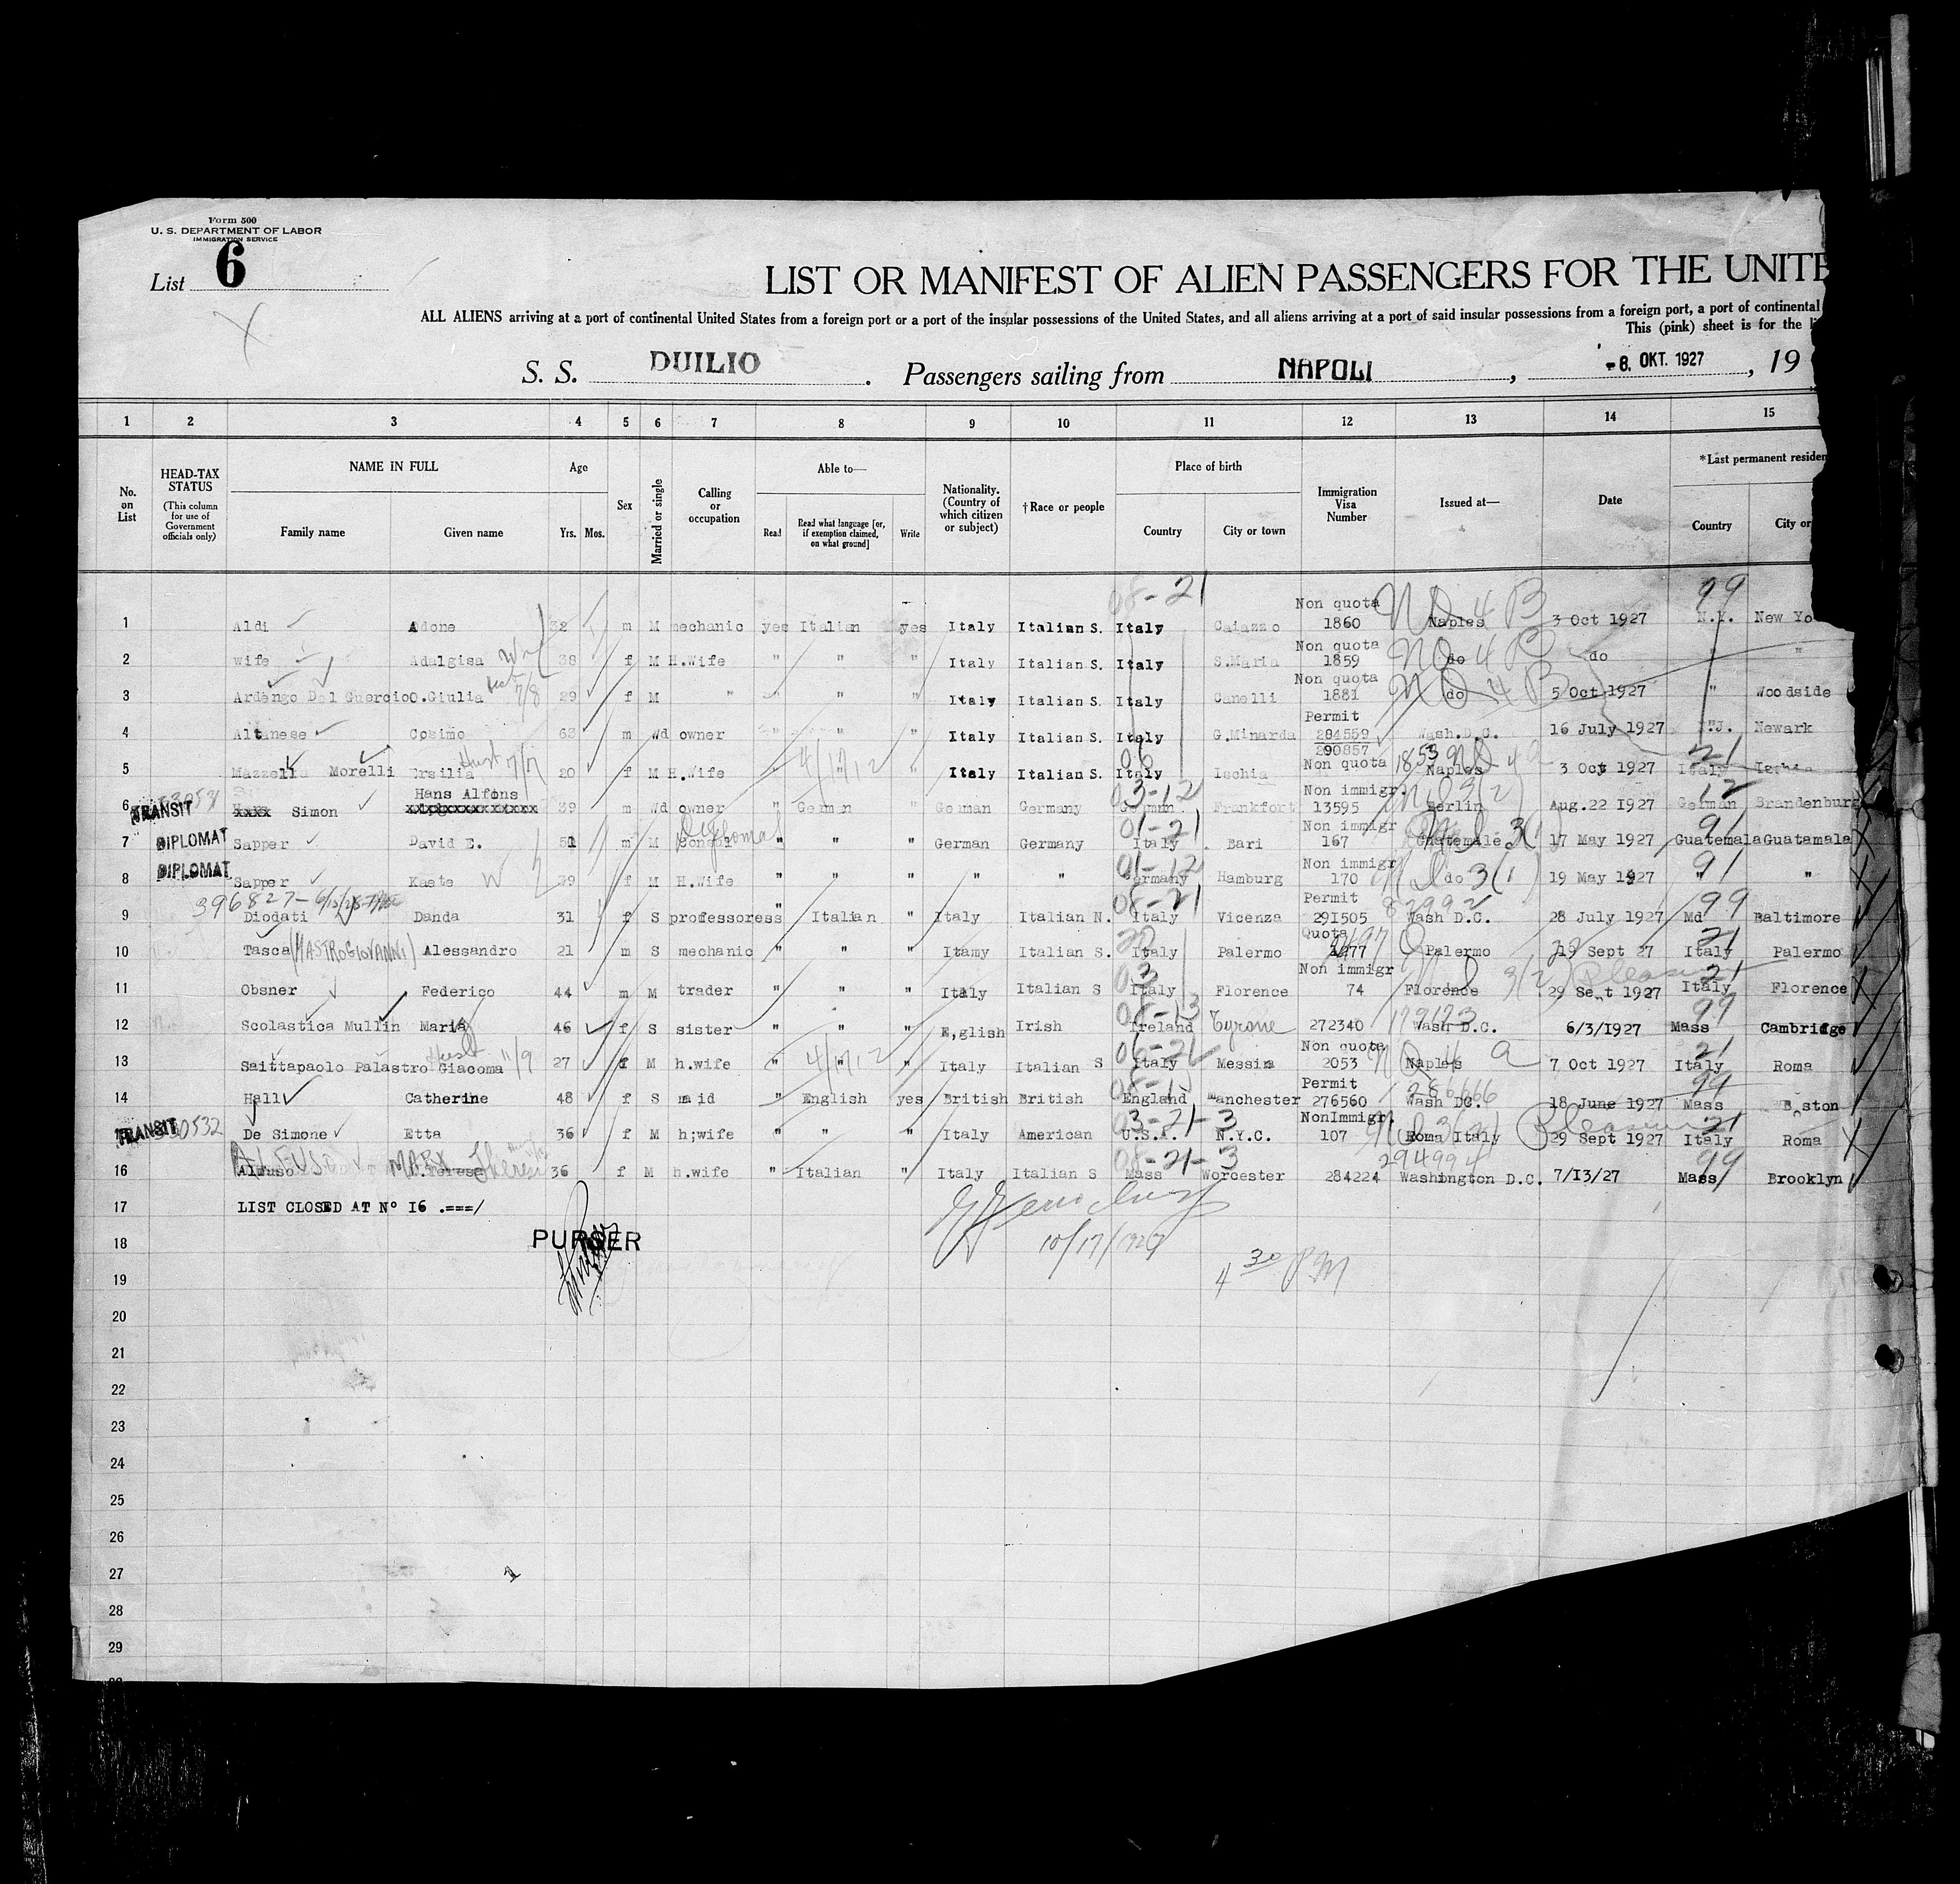 Form 500
U. S. DEPARTMENT OF LABOR
IMMIGRATION SERVICE
List 6
X
LIST OR MANIFEST OF ALIEN PASSENGERS FOR THE UNITE
ALL ALIENS arriving at a port of continental United States from a foreign port or a port of the insular possessions of the United States, and all aliens arriving at a port of said insular possessions from a foreign port, a port of continental
This (pink) sheet is for the
S. S. DUILIO . Passengers sailing from NAPOLI , -8. OKT. 1927 , 19
1 2 3 4 5 6 7 8 9 10 11 12 13 14 15
No. on List HEAD-TAX STATUS (This column for use of Government officials only) NAME IN FULL Family name Given name Age Yrs. Mos. Sex Married or single Calling or occupation Able to— Read Read what language [or, if exemption claimed, on what ground] Write Nationality. (Country of which citizen or subject) †Race or people Place of birth Country City or town Immigration Visa Number Issued at— Date *Last permanent residen Country City or
08-21 99
1 Aldi Adone 32 m M mechanic yes Italian yes Italy Italian S. Italy Caiazzo Non quota 1860 Naples 3 Oct 1927 N.Y. New Yo
2 wife Adalgisa 38 f M H.Wife " " " Italy Italian S. Italy S.Maria Non quota 1859 do do " "
3 Ardengo Del Guercio O.Giulia 7/8 29 f M " " " " Italy Italian S. Italy Canelli Non quota 1881 do 5 Oct 1927 " Woodside
4 Altanese Cosimo 63 m Wd owner " " " Italy Italian S. Italy G.Minarda Permit 284559 290857 Wash.D.C. 16 July 1927 N.J. Newark
5 Mazzella Morelli Ersilia 20 f M H.Wife " 4/17/12 " Italy Italian S. Italy Ischia Non quota 1853 Naples 3 Oct 1927 Italy 21
TRANSIT 6 Simon Hans Alfons 39 m Wd owner " German " German Germany German 03-12 Frankfort Non immigr. 13595 Berlin Aug.22 1927 German 12 Brandenburg
DIPLOMAT 7 Sapper David E. 51 m M consul Diplomat " " " German Germany Italy 01-21 Bari Non immigr 167 Guatemale 3(1) 17 May 1927 Guatemala 91 Guatamala
DIPLOMAT 8 Sapper Kaete W 39 f M H.Wife " " " " " Germany 01-12 Hamburg Non immigr 170 do 3(1) 19 May 1927 " 91 "
396827-
9 Diodati Danda 31 f S professoress " Italian " Italy Italian N. Italy 08-21 Vicenza Permit 291505 Wash D.C. 28 July 1927 Md 99 Baltimore
10 Tasca (MASTROGIOVANNI) Alessandro 21 m S mechanic " " " Itamy Italian S. Italy Palermo Quota 1277 Palermo 19 Sept 27 Italy 21 Palermo
11 Obsner Federico 44 m M trader " " " Italy Italian S Italy 03 Florence Non immigr 74 Florence 3(2) 29 Sept 1927 Italy 21 Florence
12 Scolastica Mullin Maria 46 f S sister " " " E,glish Irish Ireland 08-13 Tyrone 272340 Wash D.C. 6/3/1927 Mass 99 Cambridge
13 Saittapaolo Palastro Giacoma 11/9 27 f M h.wife " 4/17/12 " Italy Italian S Italy 06-21 Messina Non quota 2053 Naples 7 Oct 1927 Italy 21 Roma
14 Hall Catherine 48 f S maid " English yes British British England Manchester Permit 276560 Wash DC. 286666 18 June 1927 Mass 99 Boston
TRANSIT 15 De Simone Etta 36 f M h;wife " " " Italy American U.S.A. 03-21-3 N.Y.C. NonImmigr. 107 Roma Italy Pleasure 29 Sept 1927 Italy 21 Roma
16 Alfuso M.Terese 36 f M h.wife " Italian " Italy Italian S Mass 08-21-3 Worcester 284224 294994 Washington D.C. 7/13/27 Mass 99 Brooklyn
17 LIST CLOSED AT No 16 .===/
18 PURSER 10/17/1927
19 4 30 PM
20
21
22
23
24
25
26
27
28
29